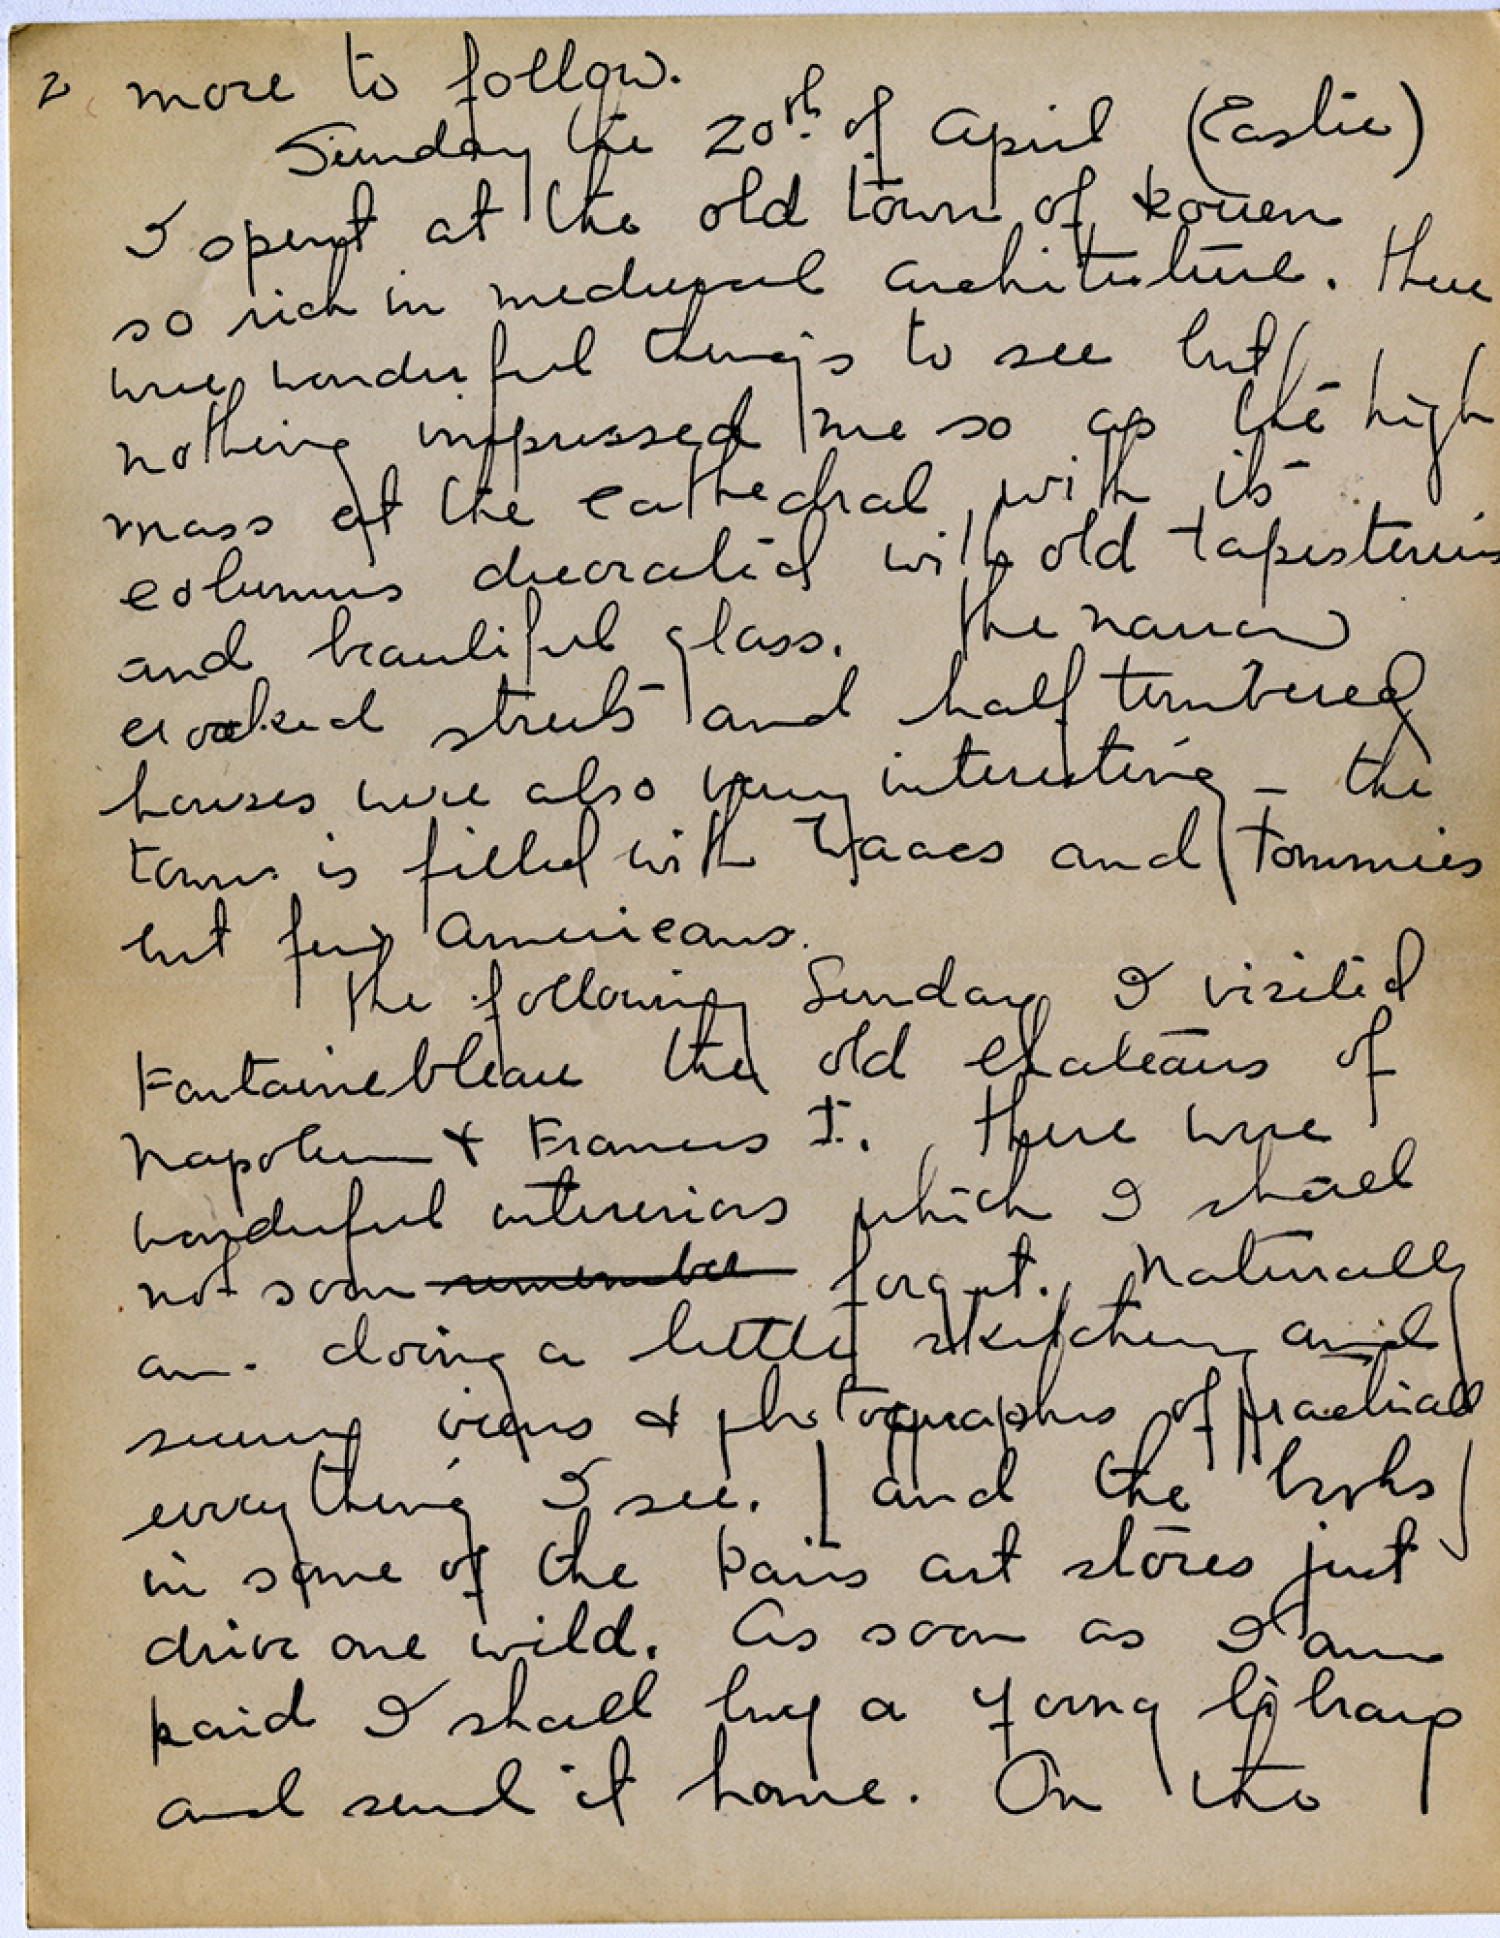 2 more to follow.
Sunday the 20th of April (Easter)
I spent at the old town of Rouen
so rich in medieval architecture. There
were wonderful things to see but
nothing impressed me so as the high
mass at the cathedral with its
columns decorated with old tapisteries
and beautiful glass. The narrow
crooked streets and half timbered
houses were also very interesting – the
town is filled with Waacs and Tommies
but few Americans.
The following Sunday I visited
Fontainebleau the old chateaus of
Napoleon & Francis I. There were
wonderful intereriors which I shall
not soon remember forget. Naturally
am doing a little sketching and
seeing views & photographs of practical
everything I see. and the books
in some of the Paris art stores just
drive one wild. As soon as I am
paid I shall buy a young library
and send it home. On the